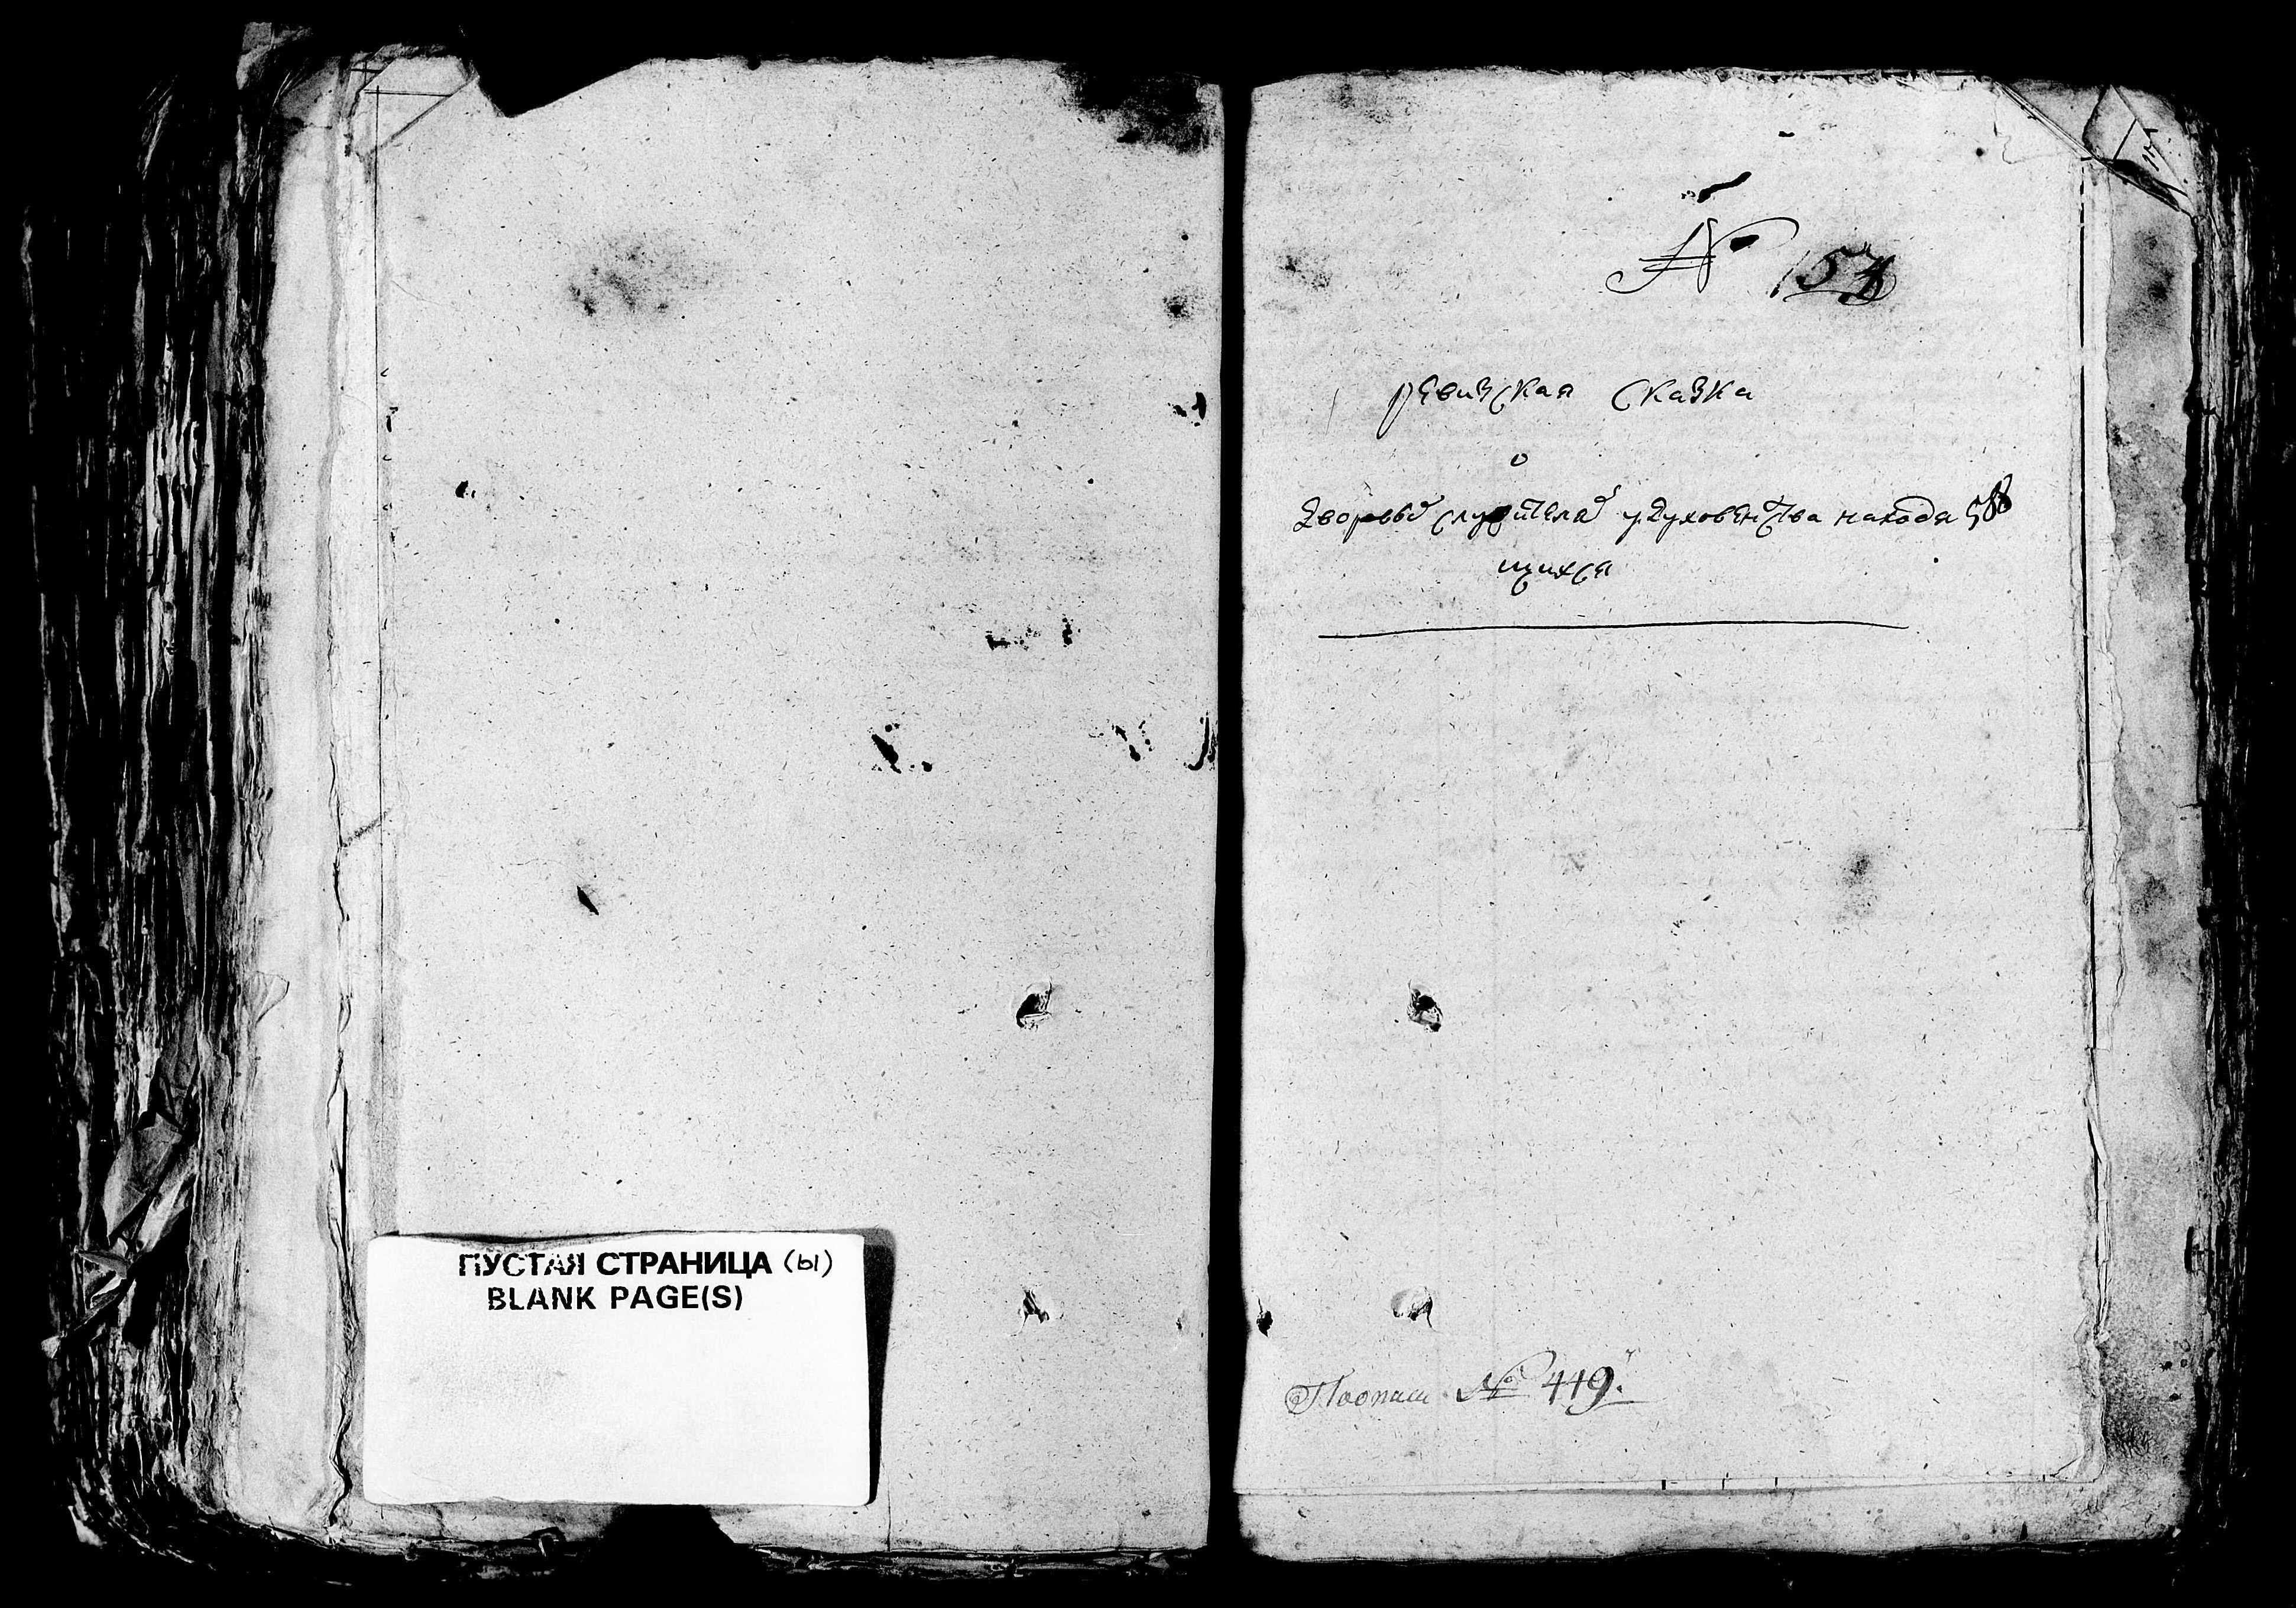 ПУСТАЯ СТРАНИЦА (ы)
BLANK PAGE(S)
№
ревиская сказка
о
дворовых служителях у духовенства находя
щихся
По описи № 449.